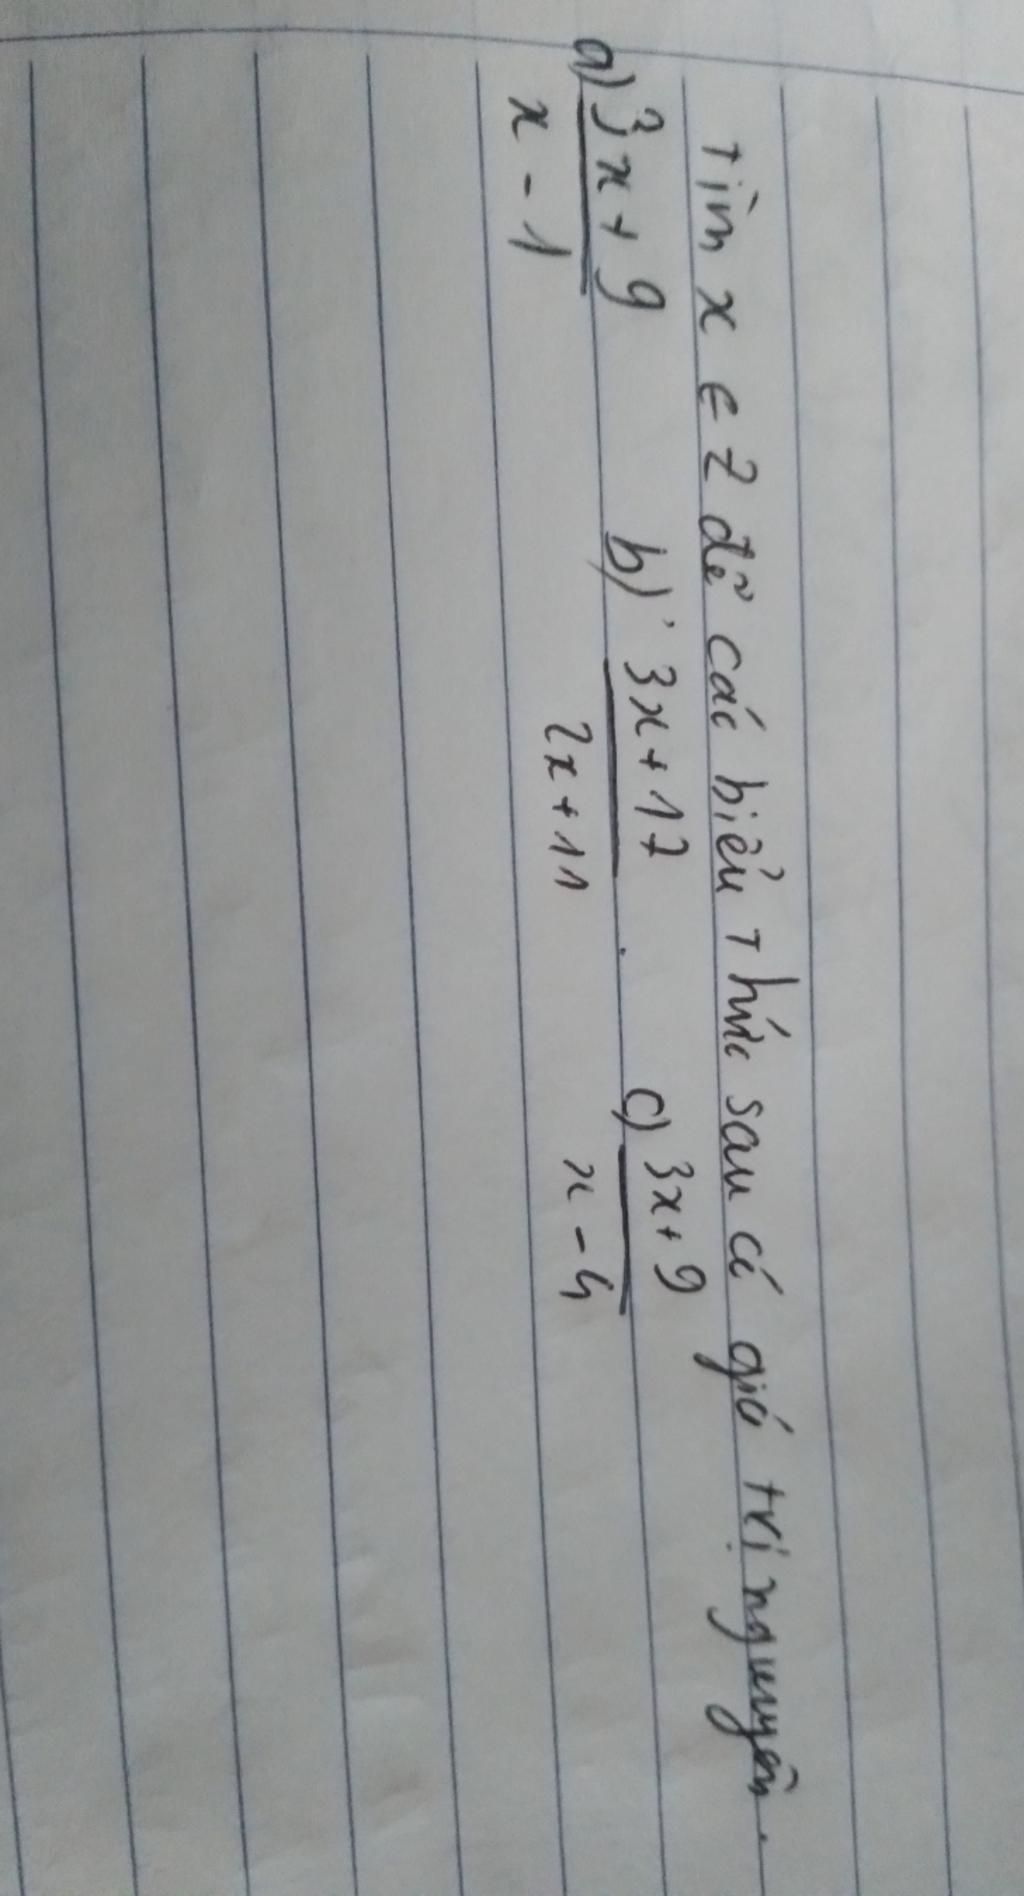 Tìm x ∈ Z để các biểu thức sau có giá trị nguyên.
a) 3x + 9 / x - 1 b) 3x + 17 / 2x + 11 c) 3x + 9 / x - 4